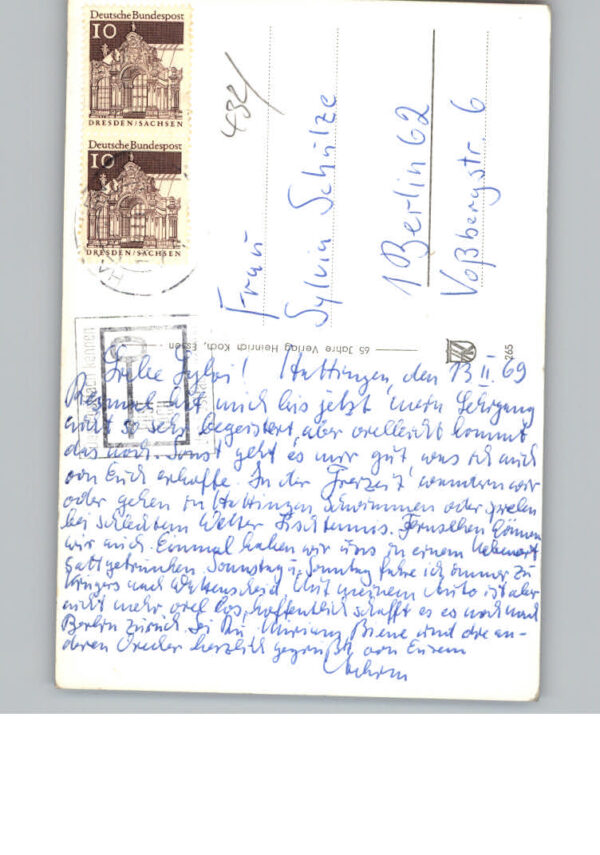 Deutsche Bundespost
10
DRESDEN/SACHSEN
Deutsche Bundespost
10
DRESDEN/SACHSEN
432/
Frau
Sylvia Schulze
1 Berlin 62
Voßbergstr. 6
65 Jahre Verlag Heinrich Koch, Essen
265
Liebe Sylvi! Hattingen, den 13 II. 69
Diesmal hat mich bis jetzt mein Lehrgang
nicht so sehr begeistert, aber vielleicht kommt
das noch. Sonst geht es mir gut, was ich auch
von Euch erhoffe. In der Freizeit wandern wir
oder gehen in Hattingen schwimmen oder spielen
bei schlechtem Wetter Tischtennis. Fernsehen können
wir auch. Einmal haben wir uns in einem
satt getrunken. Sonnstag u. Sonntag fahre ich immer zu
Krügers nach Wattenscheid. Mit meinem Auto ist aber
nicht mehr viel los, hoffentlich schafft es es noch nach
Berlin zurück. Sei Du, Miriam, Biene und die an-
deren herzlich gegrüßt von Eurem
Achim